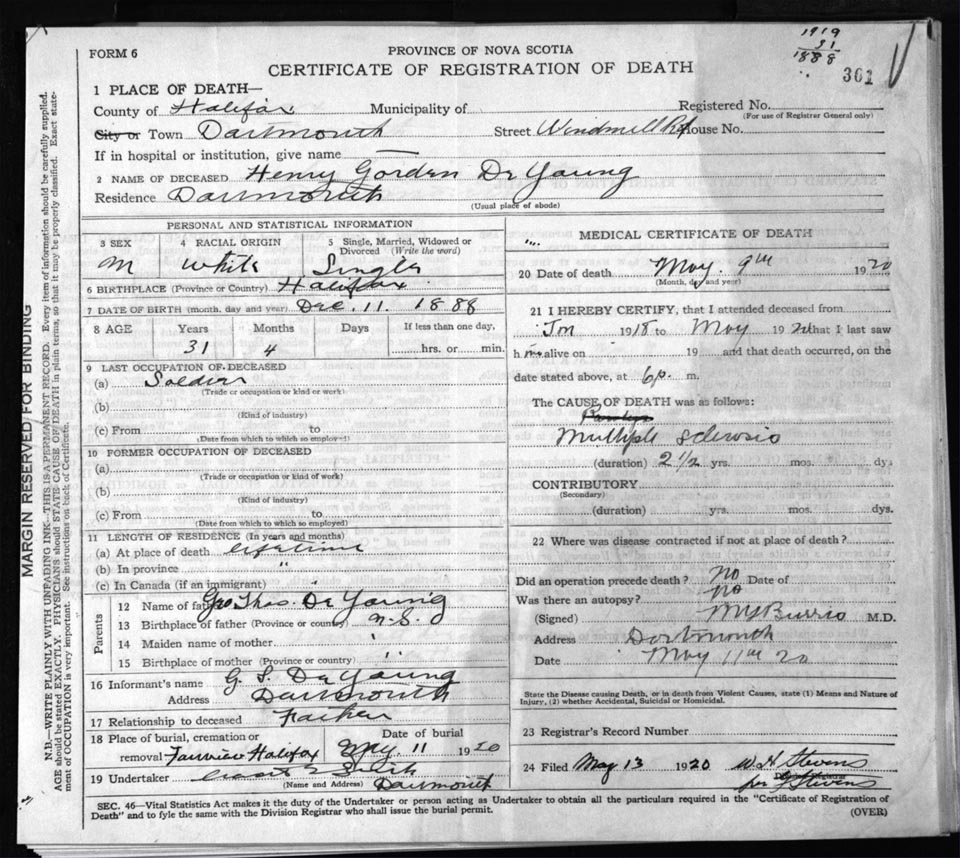 1919
31
1888
361
FORM 6
PROVINCE OF NOVA SCOTIA
CERTIFICATE OF REGISTRATION OF DEATH
1 PLACE OF DEATH—
County of Halifax Municipality of Registered No.
(For use of Registrar General only)
City or Town Dartmouth Street Windmill Rd House No.
If in hospital or institution, give name —
2 NAME OF DECEASED Henry Gordon De Young
Residence Dartmouth
(Usual place of abode)
PERSONAL AND STATISTICAL INFORMATION
3 SEX 4 RACIAL ORIGIN 5 Single, Married, Widowed or Divorced (Write the word)
M White Single
6 BIRTHPLACE (Province or Country) Halifax
7 DATE OF BIRTH (month, day and year) Dec. 11. 1888
8 AGE Years Months Days If less than one day,
31 4 hrs. or min.
9 LAST OCCUPATION OF DECEASED
(a) Soldier
(Trade or occupation or kind of work)
(b)
(Kind of industry)
(c) From to
(Date from which to which so employed)
10 FORMER OCCUPATION OF DECEASED
(a)
(Trade or occupation or kind of work)
(b)
(Kind of industry)
(c) From to
(Date from which to which so employed)
11 LENGTH OF RESIDENCE (In years and months)
(a) At place of death lifetime
(b) In province "
(c) In Canada (if an immigrant) "
Parents
12 Name of father Geo Thos. De Young
13 Birthplace of father (Province or country) N.S.
14 Maiden name of mother
15 Birthplace of mother (Province or country) "
16 Informant's name G. S. De Young
Address Dartmouth
17 Relationship to deceased Father
18 Place of burial, cremation or removal Fairview Halifax
Date of burial May 11 1920
19 Undertaker
(Name and Address) Dartmouth
MEDICAL CERTIFICATE OF DEATH
20 Date of death May. 9th 1920
(Month, day and year)
21 I HEREBY CERTIFY, that I attended deceased from
Jan 1918 to May 1920 that I last saw
him alive on 19 and that death occurred, on the
date stated above, at 6 p. m.
The CAUSE OF DEATH was as follows:
Multiple Sclerosis
(duration) 2 1/2 yrs. mos. dys.
CONTRIBUTORY
(Secondary)
(duration) yrs. mos. dys.
22 Where was disease contracted if not at place of death?
Did an operation precede death? No Date of
Was there an autopsy? No
(Signed) M.D.
Address Dartmouth
Date May 11th 20
State the Disease causing Death, or in death from Violent Causes, state (1) Means and Nature of
Injury, (2) whether Accidental, Suicidal or Homicidal.
23 Registrar's Record Number
24 Filed May 13 1920 W H Stevens
per Stevens
SEC. 46—Vital Statistics Act makes it the duty of the Undertaker or person acting as Undertaker to obtain all the particulars required in the "Certificate of Registration of
Death" and to fyle the same with the Division Registrar who shall issue the burial permit.
(OVER)
MARGIN RESERVED FOR BINDING
N.B.—WRITE PLAINLY WITH UNFADING INK—THIS IS A PERMANENT RECORD. Every item of information should be carefully supplied.
AGE should be stated EXACTLY. PHYSICIANS should STATE CAUSE OF DEATH in plain terms, so that it may be properly classified. Exact state-
ment of OCCUPATION is very important. See instructions on back of Certificate.